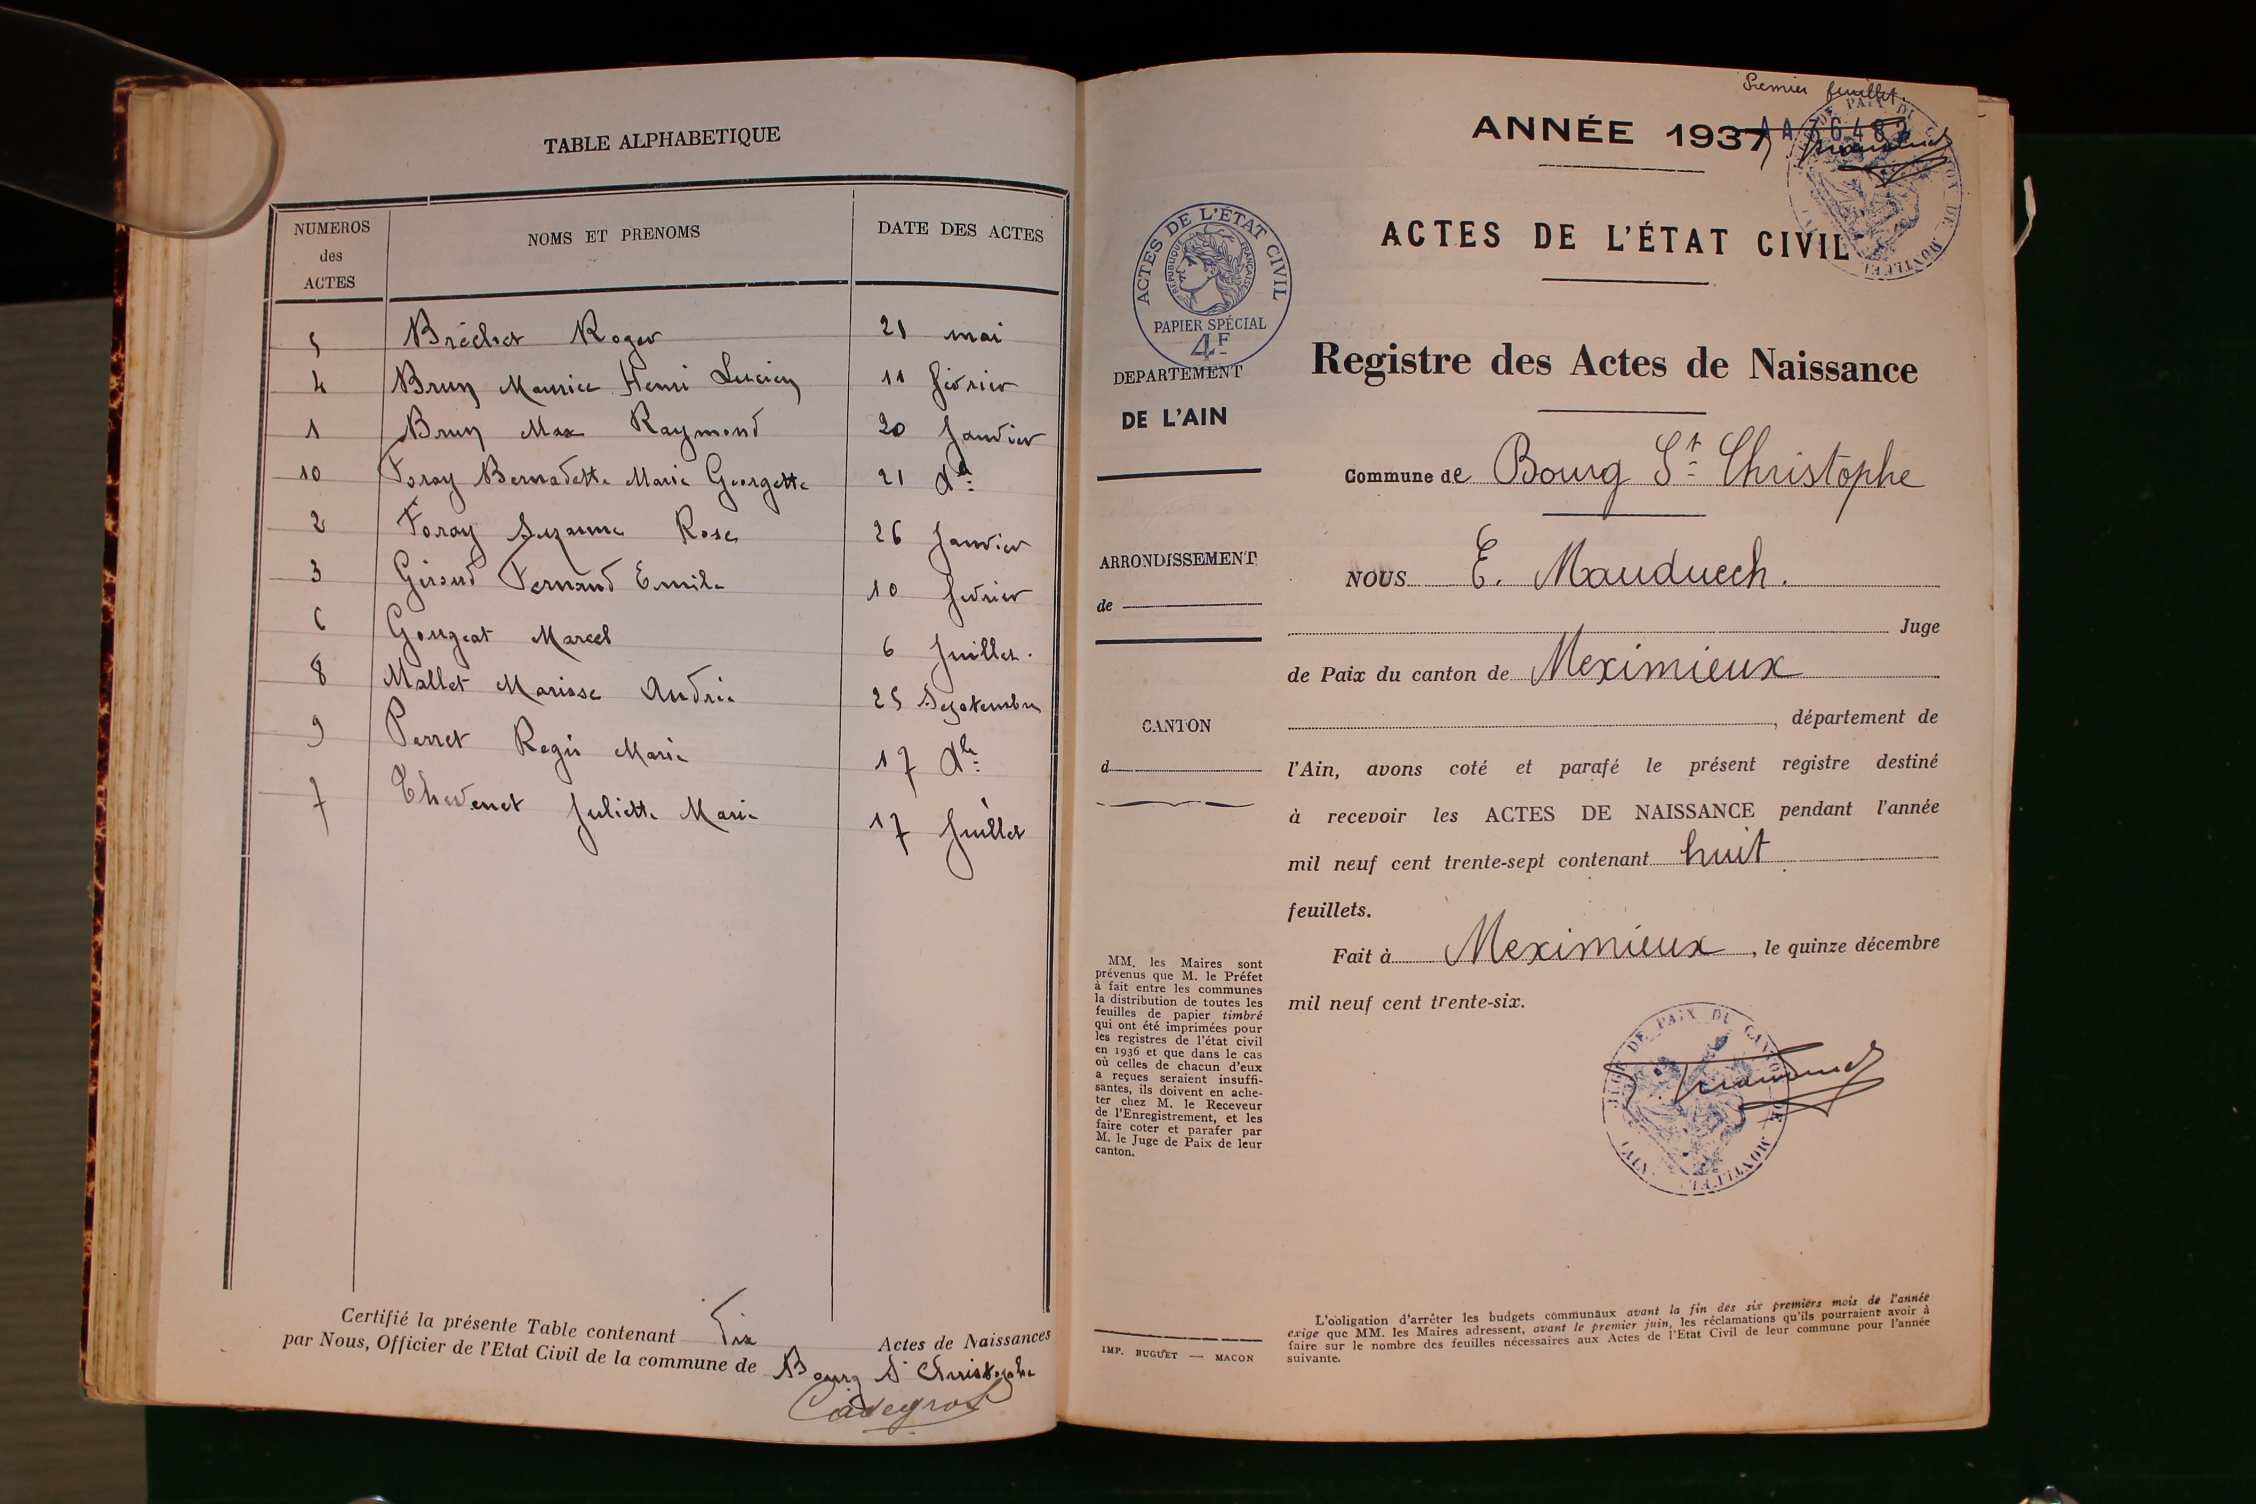 TABLE ALPHABETIQUE
NUMEROS
des
ACTES
NOMS ET PRENOMS
DATE DES ACTES
5 Bréchet Roger 21 mai
4 Brun Maurice Henri Lucien 11 février
1 Brun Max Raymond 20 Janvier
10 Foray Bernadette Marie Georgette 21
2 Foray Suzanne Rose 26 Janvier
3 Giroud Fernand Emile 10 février
6 Gougeat Marcel 6 Juillet.
8 Mallet Andrée 25 Septembre
9 Perret Regis Marie 17
7 Thevenet Juliette Marie 17 Juillet
Certifié la présente Table contenant Dix Actes de Naissances
par Nous, Officier de l'Etat Civil de la commune de Bourg St Christophe
Premier feuillet.
ANNÉE 1937
ACTES DE L'ÉTAT CIVIL
ACTES DE L'ÉTAT CIVIL
RÉPUBLIQUE FRANÇAISE
PAPIER SPÉCIAL
4F
DEPARTEMENT
DE L'AIN
ARRONDISSEMENT
de
CANTON
d
MM. les Maires sont
prévenus que M. le Préfet
à fait entre les communes
la distribution de toutes les
feuilles de papier timbré
qui ont été imprimées pour
les registres de l'état civil
en 1936 et que dans le cas
où celles de chacun d'eux
a reçues seraient insuffi-
santes, ils doivent en ache-
ter chez M. le Receveur
de l'Enregistrement, et les
faire coter et parafer par
M. le Juge de Paix de leur
canton.
IMP. BUGUET — MACON
Registre des Actes de Naissance
Commune de Bourg St Christophe
NOUS E. Mauduech.
Juge
de Paix du canton de Meximieux
, département de
l'Ain, avons coté et parafé le présent registre destiné
à recevoir les ACTES DE NAISSANCE pendant l'année
mil neuf cent trente-sept contenant huit
feuillets.
Fait à Meximieux, le quinze décembre
mil neuf cent trente-six.
JUGE DE PAIX DU CANTON DE MONTLUEL
AIN
L'obligation d'arrêter les budgets communaux avant la fin des six premiers mois de l'année
exige que MM. les Maires adressent, avant le premier juin, les réclamations qu'ils pourraient avoir à
faire sur le nombre des feuilles nécessaires aux Actes de l'Etat Civil de leur commune pour l'année
suivante.